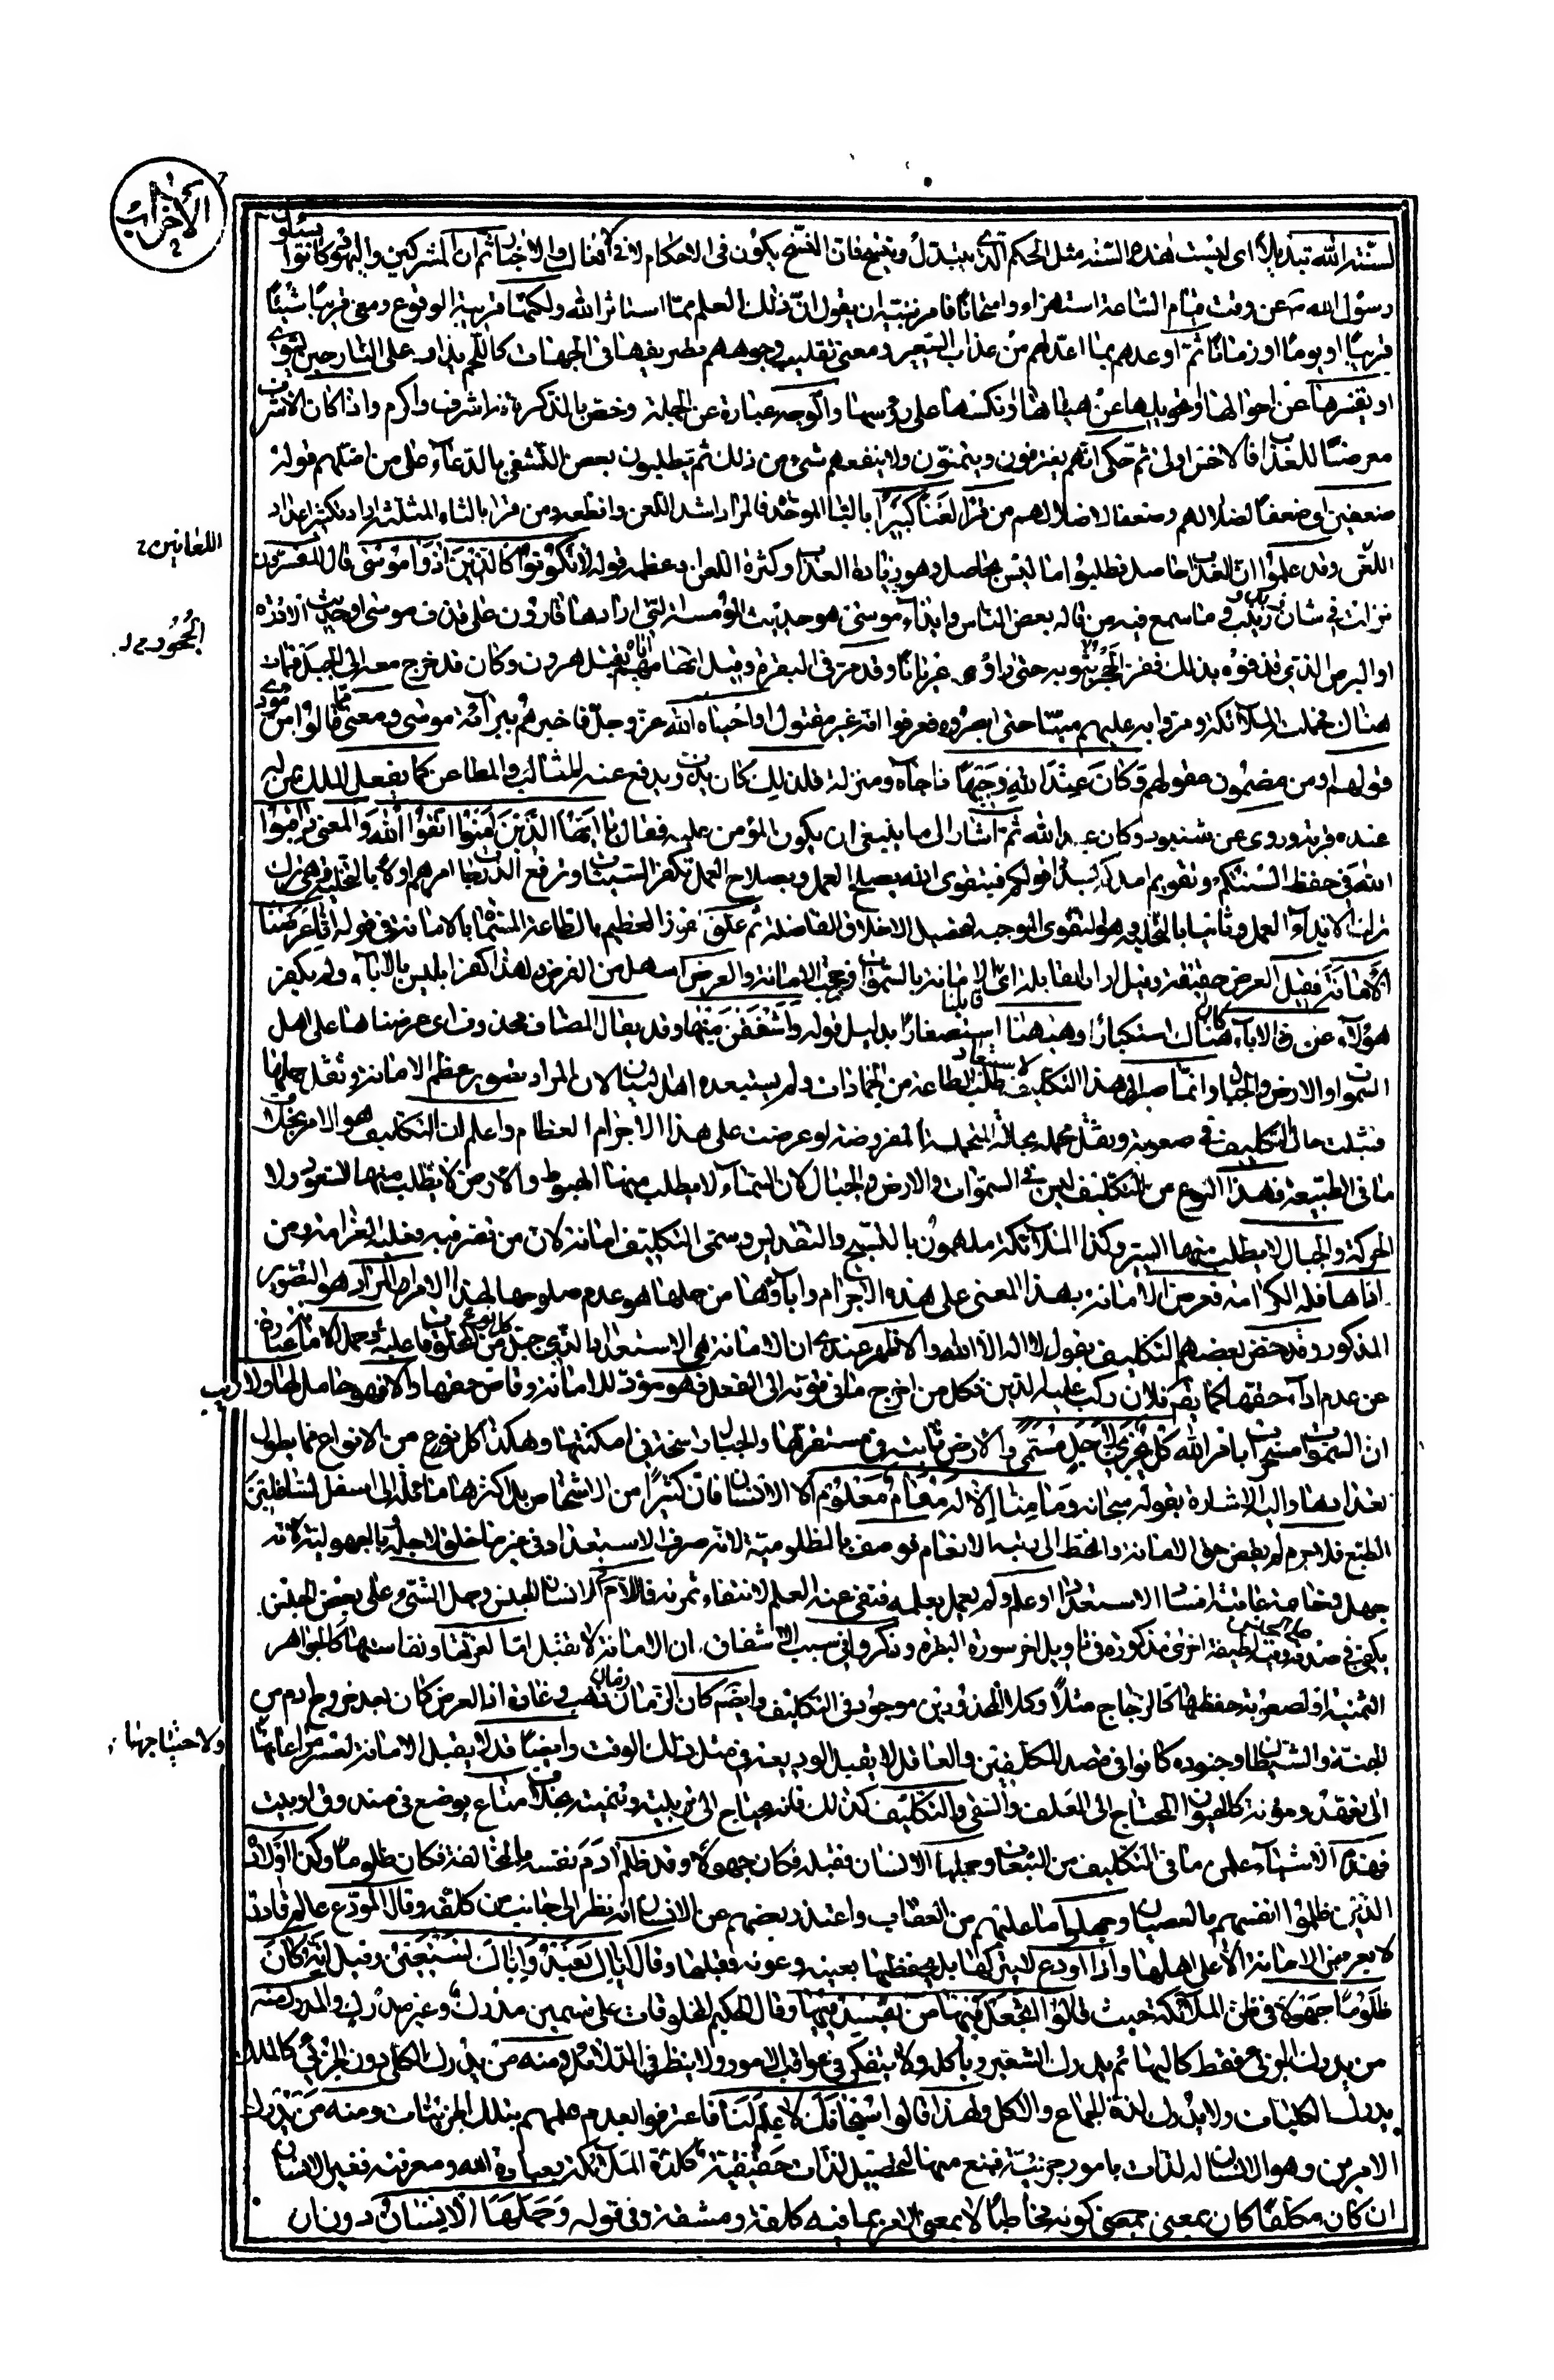 الأحزاب
لسنة الله تبديلا اى ليست هذه السنة مثل الحكم الذى يتبدل وينسخ فان النسخ يكون فى الاحكام لا فى الافعال والاخبار ثم ان المشركين واليهود كانوا يسئلون
رسول الله ص عن وقت قيام الساعة استهزاء وامتحانا فامر نبيه ان يقول ان ذلك العلم مما استاثر الله ولكنها قريبة الوقوع ومعنى قريبا شيئا
قريبا او يوما او زمانا ثم اوعدهم بما اعد لهم من عذاب السعير ومعنى تقليب وجوههم تصريفها فى الجهات كاللحم يدار على النار حين يشوى
او تغيرها عن احوالها او تحويلها عن هيئاتها او نكسها على رؤسها والوجه عبارة عن الجملة وخص بالذكر لانه اشرف واكرم واذا كان الاشرف
معرضا للعذاب فالاخس اولى ثم حكى انهم يعترفون ويتمنون ولا ينفعهم شىء من ذلك ثم يطلبون بعض التشفى بالدعاء على من اضلهم قوله
ضعفين اى ضعفا لضلالهم وضعفا لاضلالهم من قرا لعنا كبيرا بالباء الموحدة فالمراد اشد اللعن وافظعه ومن قرا بالثاء المثلثة اراد تكثير اعداد
اللعن وقد علموا ان العذاب حاصل فطلبوا ما ليس بحاصل وهو زيادة العذاب وكثرة اللعن وعظمه قوله لا تكونوا كالذين اذوا موسى قال المفسرون
نزلت فى شان زينب وما سمع فيه من قاله بعض الناس وايذاء موسى هو حديث المومسة التى ارادها قارون على قذف موسى او حديث الادرة
او البرص الذى قذفوه بذلك ففر الحجر بثوبه حتى راوه عريانا وقد مر فى البقرة وقيل اتهامهم اياه بقتل هرون وكان قد خرج معه الى الجبل فمات
هناك فحملته الملائكة ومروا به عليهم ميتا حتى ابصروه فعرفوا انه غير مقتول او احياه الله عز وجل فاخبرهم ببراءة موسى ومعنى مما قالوا من مودى
قولهم او من مضمون مقولهم وكان عند الله وجيها ذا جاه ومنزلة فلذلك كان يذب ويدفع عنه المثالب والمطاعن كما يفعل الملك بمن له
عنده قربة وروى عن شنبوذ وكان عبد الله ثم اشار الى ما ينبغى ان يكون المؤمن عليه فقال يا ايها الذين امنوا اتقوا الله والمعنى راقبوا
الله فى حفظ السنتكم وتقويم امركم بسداد قولكم فبتقوى الله يصلح العمل وبصلاح العمل تكفر السيئات وترفع الدرجات امرهم اولا بالتخلية وهى ترك
ترك الايذاء العمل وثانيا بالتحلية وهو التقوى الموجبة لتحصيل الاخلاق الفاضلة ثم علق فوز العظيم بالطاعة المسماة بالامانة فى قوله انا عرضنا
الامانة فقيل العرض حقيقة وقيل اراد المقابلة اى قابلنا الامانة بالسموات فرجحت الامانة والعرض اسهل من الفرض ولهذا كفر ابليس بالاباء ولم يكفر
هؤلاء عن فى الاباء كان هناك استكبارا وههنا استصغارا بدليل قوله واشفقن منها وقد يقال المضاف محذوف اى عرضناها على اهل
السموات والارض والجبال وانما صير الى هذا التكليف لاستبعاد طلب الطاعة من الجمادات ولم يستبعده اهل البيان لان المراد تصوير عظم الامانة وثقل حملها
فمثلت حال التكليف فى صعوبته وثقل محمله بحاله المتحملة المفروضة لو عرضت على هذا الاجرام العظام واعلم ان التكليف هو الامر بخلاف
ما فى الطبيعة فهذا النوع من التكليف ليس فى السموات والارض والجبال لان السماء لا يطلب منها الهبوط والارض لا يطلب منها الصعود ولا
الحركة والجبال لا يطلب منها السير وكذا الملائكة ملهمون بالتسبيح والتقديس وسمى التكليف امانة لان من قصر فيه فعليه الغرامة ومن
اداها فله الكرامة فعرض الامانة بهذا المعنى على هذه الاجرام واباؤها من حملها هو عدم صلوحها لهذا الامر او المراد هو التصوير
المذكور وقد خص بعضهم التكليف بقول لا اله الا الله والاظهر عندى ان الامانة هى الاستعداد الذى جبل كل نوع من المخلوقات عليه وحمل الامانة عبارة
عن عدم اداء حقها كما يقال فلان ركب عليه الدين فكل من اخرج ما فى قوته الى الفعل فهو مؤد للامانة وقاض حقها والا فهو حامل لها ولا ريب
ان السموات مسخرات بامر الله كل يجرى لاجل مسمى والارض ثابتة فى مستقرها والجبال راسخة فى امكنتها وهكذا كل نوع من الانواع مما يطول
تعدادها واليه الاشارة بقوله سبحانه وما منا الا له مقام معلوم الا الانسان فان كثيرا من الاشخاص بل اكثرها مائلة الى اسفل السافلين
الطبع فلا جرم لم يقض حق الامانة وانحط الى رتبة الانعام فوصف بالمظلومية لانه صرف الاستعداد فى غير ما خلق لاجله وبالجهولية لانه
جهل وخامة عاقبة افساد الاستعداد او علم ولم يعمل بعلمه فنفى عنه العلم لانتفاء ثمرته فاللام فى الانسان للجنس وحمل الشىء على بعض الجنس
يكفى فى صدقه على الجنس وفيه لطيفة اخرى مذكورة فى تاويل اخر سورة البقرة وذكروا فى سبب الاشفاق ان الامانة لا تقبل اما لعزتها ونفاستها كالجواهر
الثمينة او لصعوبة حفظها كالزجاج مثلا وكلا المحذورين موجود فى التكليف وايضا كان الزمان زمان نهب وغارة اذ العرض كان بعد خروج ادم من
الجنة والشيطان وجنوده كانوا فى قصد المكلفين والعاقل لا يقبل الوديعة فى مثل ذلك الوقت وايضا قد لا يقبل الامانة لعسر مراعاتها
الى تعهد ومؤنة كالحيوان المحتاج الى العلف والسقى والتكليف كذلك فانه يحتاج الى تربية وتنمية بخلاف متاع يوضع فى صندوق او بيت
فهذه الاشياء علمن ما فى التكليف من التبعات وجهلها الانسان فقبله فكان جهولا وقد ظلم ادم نفسه بالمخالفة فكان ظلوما وكذا اولاده
الذين ظلموا انفسهم بالعصيان وجهلوا ما عليهم من العقاب واعتذر بعضهم عن الانسان انه نظر الى جانب من كلفه وقال المودع عالم قادر
لا يعرض الامانة الا على اهلها واذا اودع لا يتركها بل يحفظها بعينه وعونه فقبلها وقال اياك نعبد واياك نستعين وقيل انه كان
ظلوما جهولا فى ظن الملائكة حيث قالوا اتجعل فيها من يفسد فيها وقال الحكيم المخلوقات على قسمين مدرك وغير مدرك والمدرك منه
من يدرك الجزئى فقط كالبهائم يدرك الشعير وياكله ولا يتفكر فى عواقب الامور ولا ينظر فى الدلائل ومنه من يدرك الكلى دون الجزئى كالملك
يدرك الكليات ولا يدرك لذة الجماع والاكل ولهذا قالوا سبحانك لا علم لنا فاعترفوا بعدم علمهم بتلك الجزئيات ومنه من يدرك
الامرين وهو الانسان له لذات بامور جزئية فمنع منها لتحصيل لذات حقيقية كلذة الملائكة بعبادة الله ومعرفته فغير الانسان
ان كان مكلفا كان بمعنى كونه مخاطبا لا بمعنى الامر بما فيه كلفة ومشقة وفى قوله وحملها الانسان دون ان
اللعانين
الجحود
ولاحتياجها